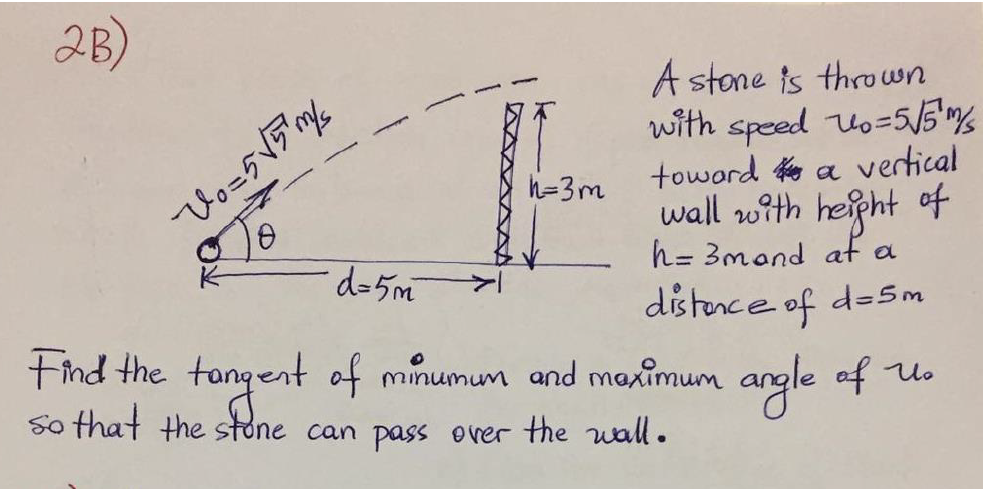 2B)
A stone is thrown
with speed v₀=5√5 m/s
toward a vertical
wall with height of
h= 3m and at a
distance of d=5m
v₀=5√5 m/s
θ
h=3m
d=5m
Find the tangent of minumum and maximum angle of v₀
so that the stone can pass over the wall.